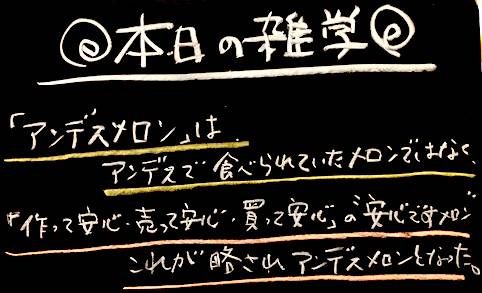 本日の雑学
「アンデスメロン」は
アンデスで食べられていたメロンではなく、
『作って安心・売って安心・買って安心』の"安心ですメロン"
これが略されアンデスメロンとなった。